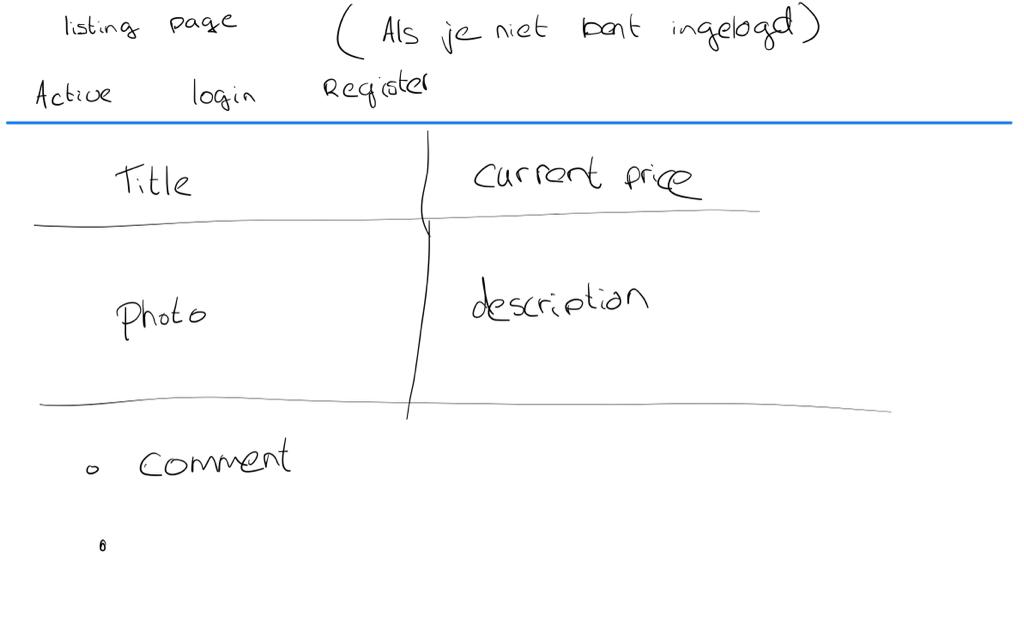 listing page (Als je niet bent ingelogd)
Active login Register
Title current price
Photo description
o comment